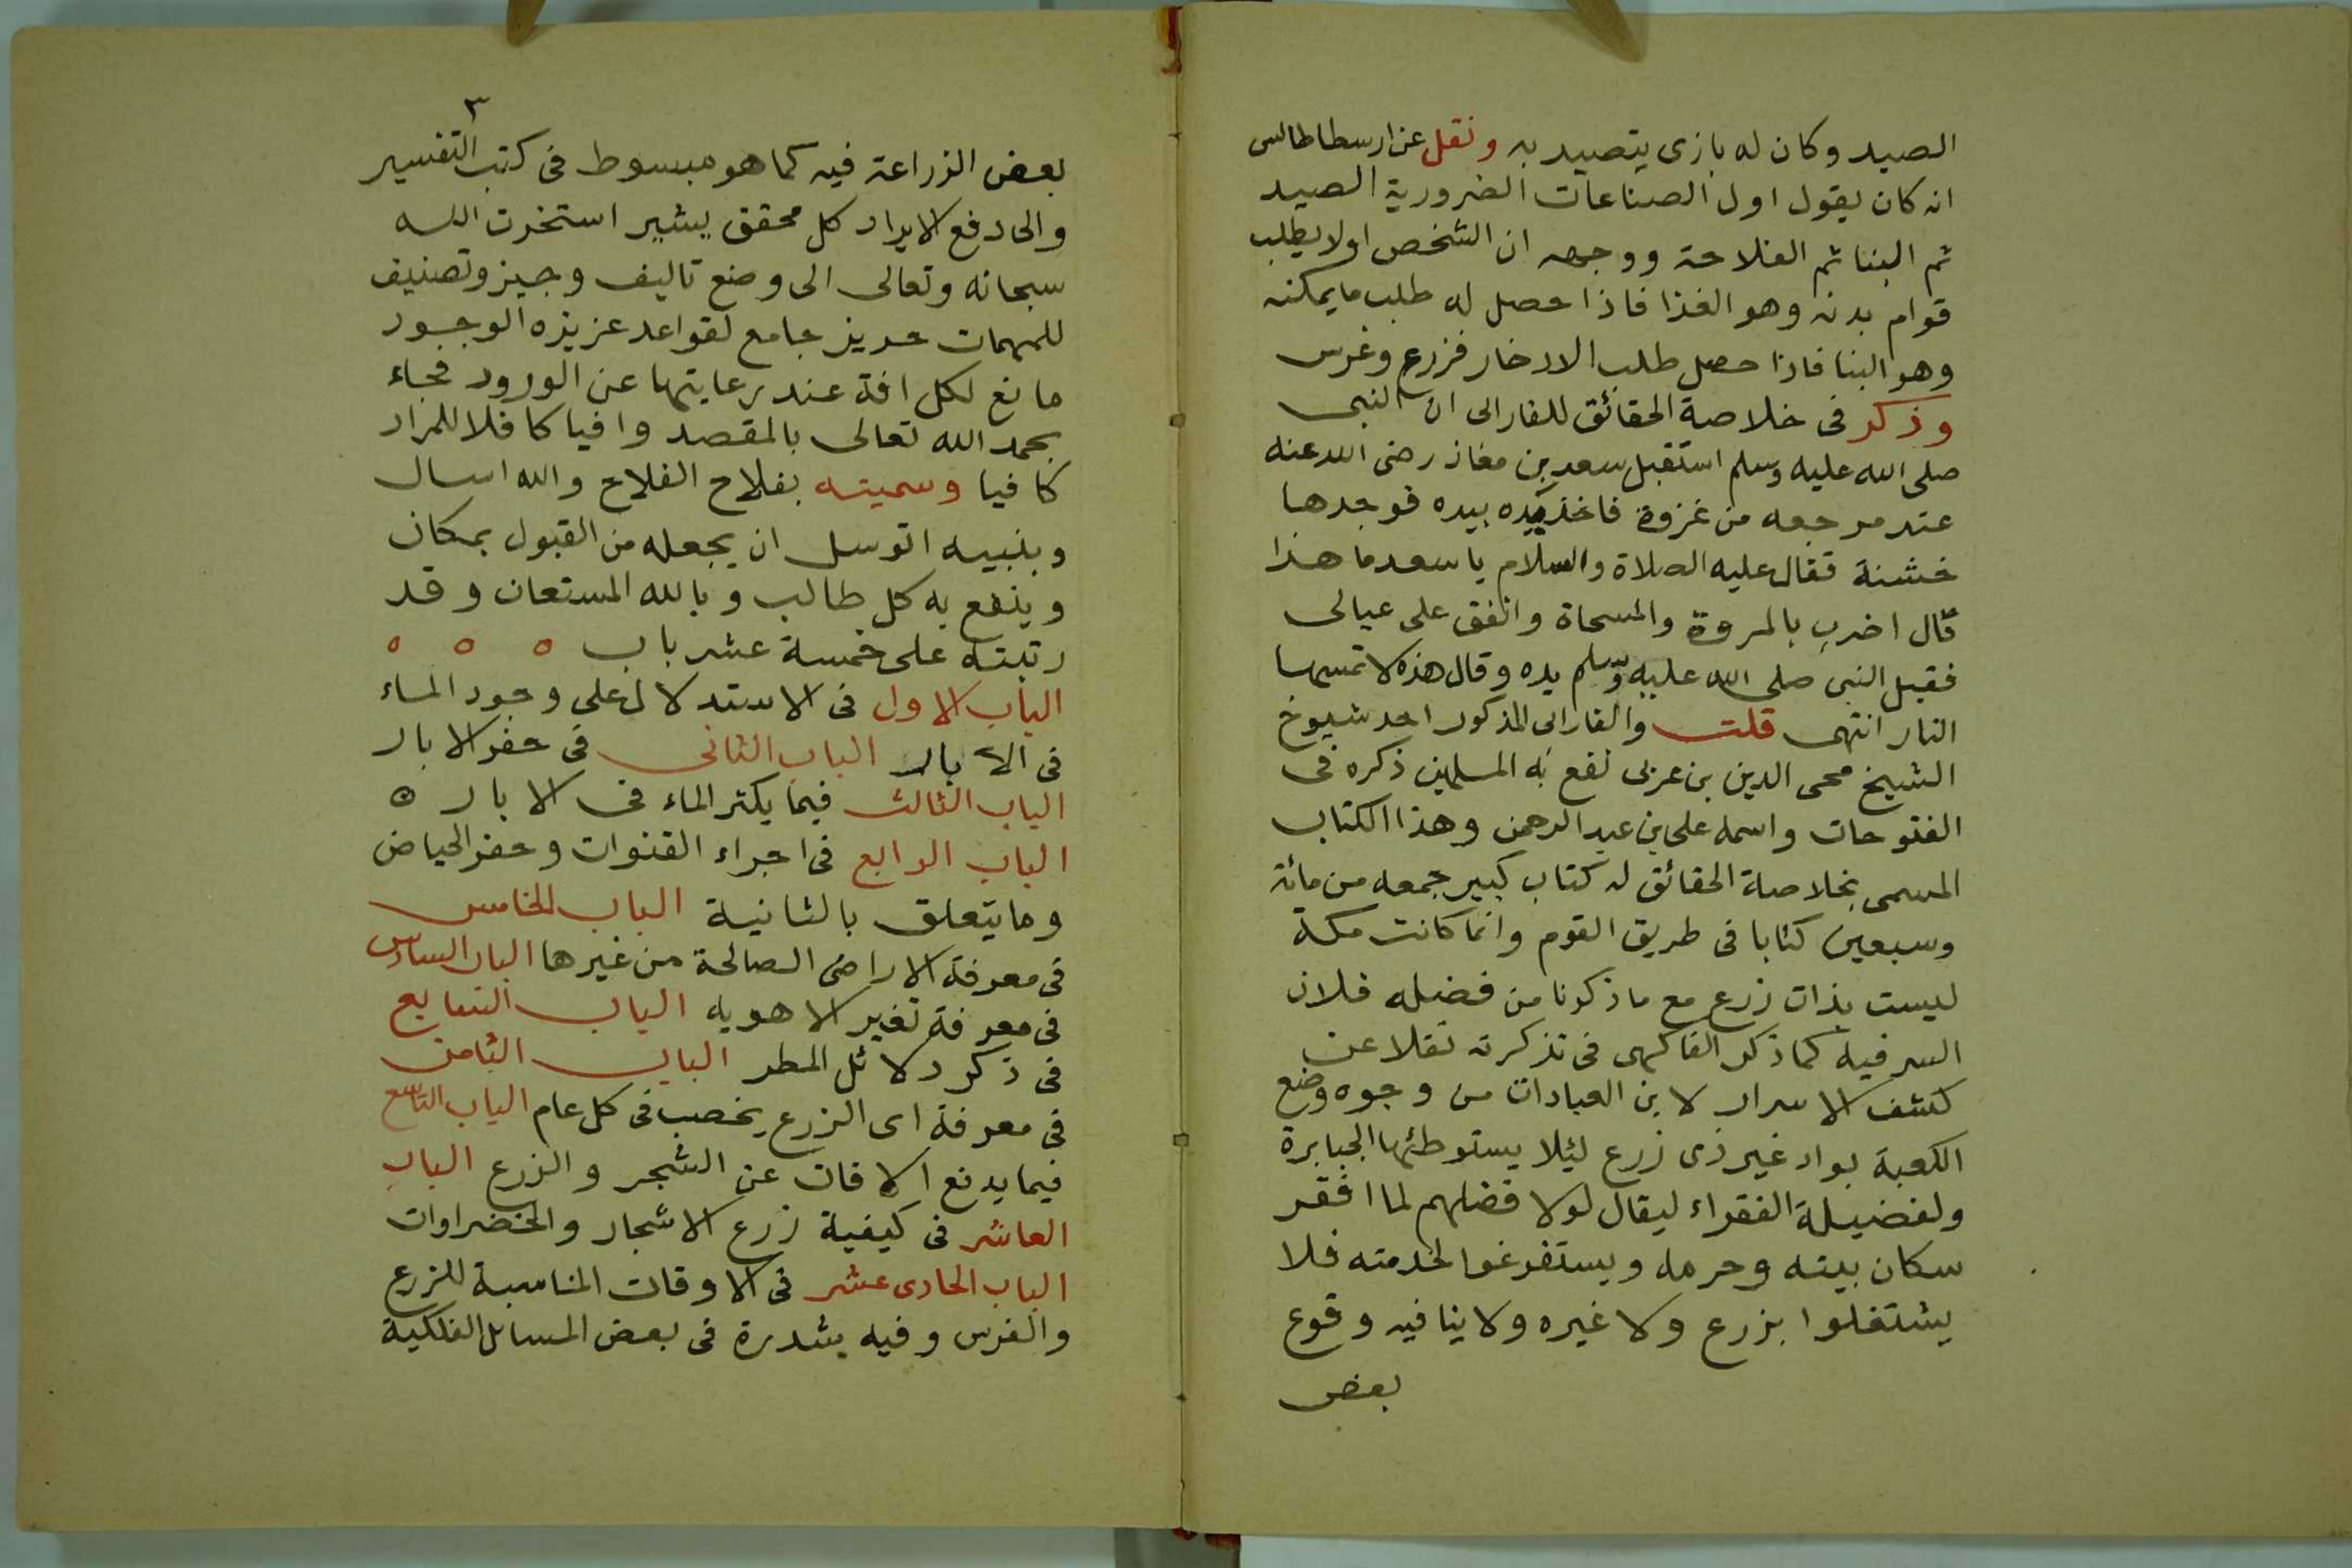 الصيد وكان له بازى يتصيد به ونقل عن ارسطاطالس
انه كان يقول اول الصناعات الضرورية الصيد
ثم البنا ثم الفلاحة ووجهه ان الشخص اولا يطلب
قوام بدنه وهو الغذا فاذا حصل له طلب ما يمكنه
وهو البنا فاذا حصل طلب الادخار فزرع وغرس
وذكر فى خلاصة الحقائق للفارابى ان النبى
صلى الله عليه وسلم استقبل سعد بن معاذ رضى الله عنه
عند مرجعه من غزوة فاخذ يده بيده فوجدها
خشنة فقال عليه الصلاة والسلام يا سعد ما هذا
قال اضرب بالمروة والمسحاة وانفق على عيالى
فقبل النبى صلى الله عليه وسلم يده وقال هذه لا تمسها
النار انتهى قلت والفارابى المذكور احد شيوخ
الشيخ محى الدين بن عربى نفع به المسلمين ذكره فى
الفتوحات واسمه على بن عبد الرحمن وهذا الكتاب
المسمى بخلاصة الحقائق له كتاب كبير جمعه من مائة
وسبعين كتابا فى طريق القوم وانما كانت مكة
ليست بذات زرع مع ما ذكرنا من فضله فلان
السر فيه كما ذكر الفاكهى فى تذكرته نقلا عن
كشف الاسرار لابن العبادات من وجوه وضع
الكعبة بواد غير ذى زرع ليلا يستوطئها الجبابرة
ولفضيلة الفقراء ليقال لولا فضلهم لما افقر
سكان بيته وحرمه ويستفرغوا لخدمته فلا
يشتغلوا بزرع ولا غيره ولا ينافيه وقوع
بعض
٣
بعض الزراعة فيه كما هو مبسوط فى كتب التفسير
والى دفع الايراد كل محقق يشير استخرت الله
سبحانه وتعالى الى وضع تاليف وجيز وتصنيف
للمهمات حريز جامع لقواعد عزيزه الوجود
مانع لكل افة عند رعايتها عن الورود فجاء
بحمد الله تعالى بالمقصد وافيا كافلا للمراد
كافيا وسميته بفلاح الفلاح والله اسال
وبنبيه اتوسل ان يجعله من القبول بمكان
وينفع به كل طالب وبالله المستعان وقد
رتبته على خمسة عشر باب ه ه ه
الباب الاول فى الاستدلال على وجود الماء
فى الابار الباب الثانى فى حفر الابار
الباب الثالث فيما يكثر الماء فى الابار ه
الباب الرابع فى اجراء القنوات وحفر الحياض
وما يتعلق بالثانية الباب الخامس
فى معرفة الاراضى الصالحة من غيرها الباب السادس
فى معرفة تغير الاهويه الباب السابع
فى ذكر دلائل المطر الباب الثامن
فى معرفة اى الزرع يخصب فى كل عام الباب التاسع
فيما يدفع الافات عن الشجر والزرع الباب
العاشر فى كيفية زرع الاشجار والخضراوات
الباب الحادى عشر فى الاوقات المناسبة للزرع
والغرس وفيه شدرة فى بعض المسائل الفلكية